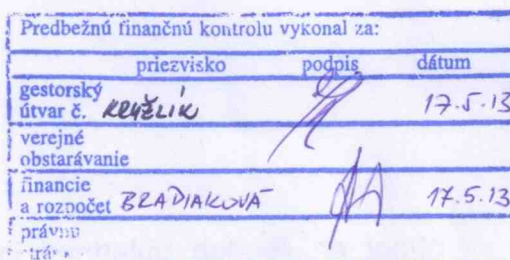 Predbežnú finančnú kontrolu vykonal za:
priezvisko podpis dátum
gestorský
útvar č. KRYŽLIK 17.5.13
verejné
obstarávanie
financie
a rozpočet BRADIAKOVÁ 17.5.13
právnu